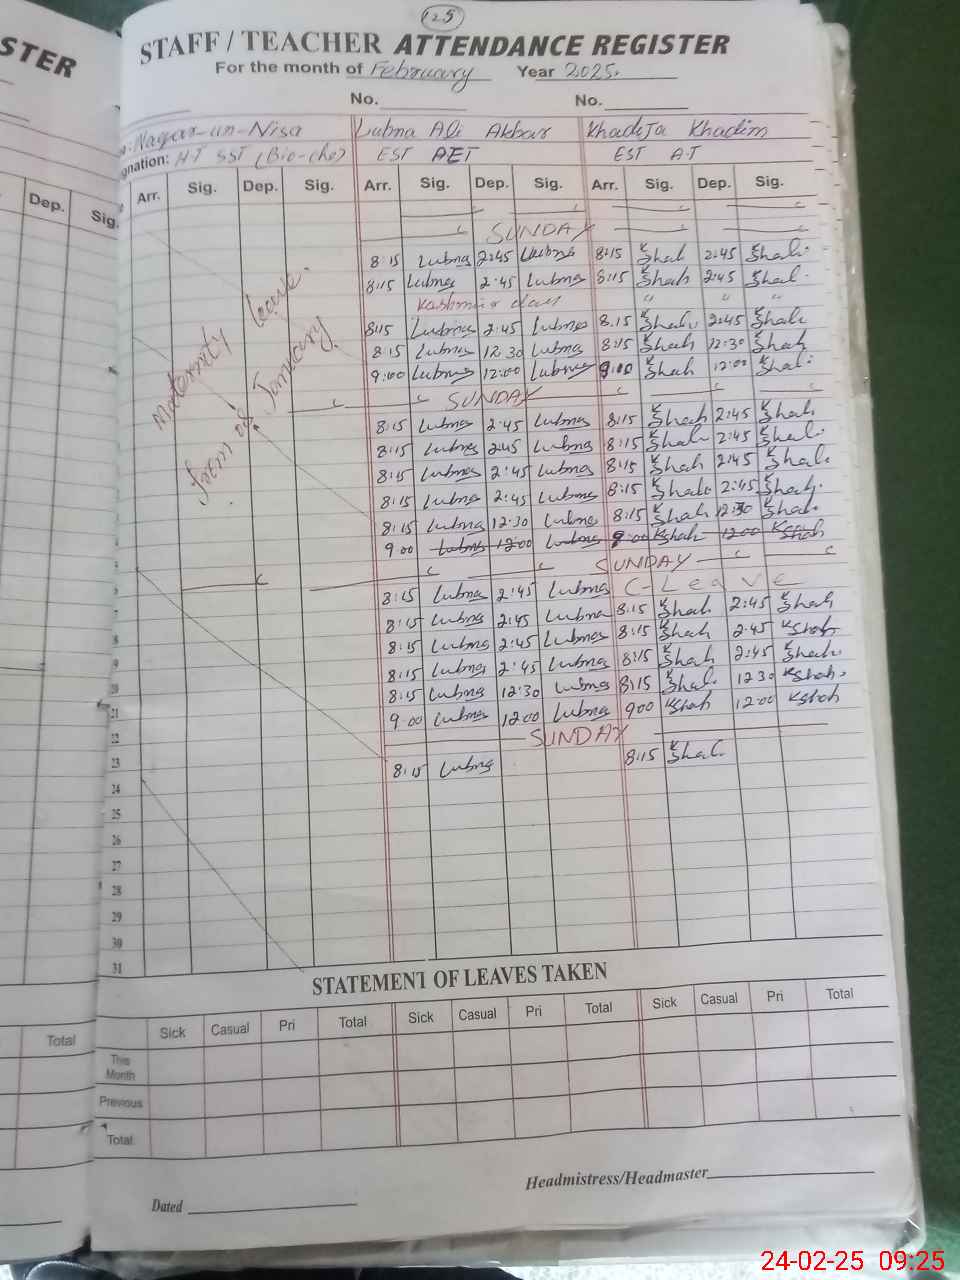 125
STER STAFF / TEACHER ATTENDANCE REGISTER
For the month of February Year 2025.
No. No.
Nayyar-un-Nisa Lubna Ali Akbar Khadija Khadim
gnation: H.T SST (Bio-che) EST AET EST A.T
Dep. Sig. Arr. Sig. Dep. Sig. Arr. Sig. Dep. Sig. Arr. Sig. Dep. Sig.
SUNDAY
8:15 Lubna 2:45 Lubna 8:15 KShah 2:45 KShah
8:15 Lubna 2:45 Lubna 8:15 KShah 2:45 KShah
Kashmir day " " "
8:15 Lubna 2:45 Lubna 8:15 KShah 2:45 KShah
8:15 Lubna 12:30 Lubna 8:15 KShah 12:30 KShah
9:00 Lubna 12:00 Lubna 9:00 KShah 12:00 KShah
Maternity leave
from 08 January.
SUNDAY
8:15 Lubna 2:45 Lubna 8:15 KShah 2:45 KShah
8:15 Lubna 2:45 Lubna 8:15 KShah 2:45 KShah
8:15 Lubna 2:45 Lubna 8:15 KShah 2:45 KShah
8:15 Lubna 2:45 Lubna 8:15 KShah 2:45 KShah
8:15 Lubna 12:30 Lubna 8:15 KShah 12:30 KShah
9:00 Lubna 12:00 Lubna 9:00 KShah 12:00 KShah
SUNDAY
8:15 Lubna 2:45 Lubna C-Leave
8:15 Lubna 2:45 Lubna 8:15 KShah 2:45 KShah
8:15 Lubna 2:45 Lubna 8:15 KShah 2:45 KShah
8:15 Lubna 2:45 Lubna 8:15 KShah 2:45 KShah
8:15 Lubna 12:30 Lubna 8:15 KShah 12:30 KShah
9:00 Lubna 12:00 Lubna 9:00 KShah 12:00 KShah
22 SUNDAY
23 8:15 Lubna 8:15 KShah
24
25
26
27
28
29
30
31
STATEMENT OF LEAVES TAKEN
Total Sick Casual Pri Total Sick Casual Pri Total Sick Casual Pri Total
This Month
Previous
Total
Dated Headmistress/Headmaster
24-02-25 09:25